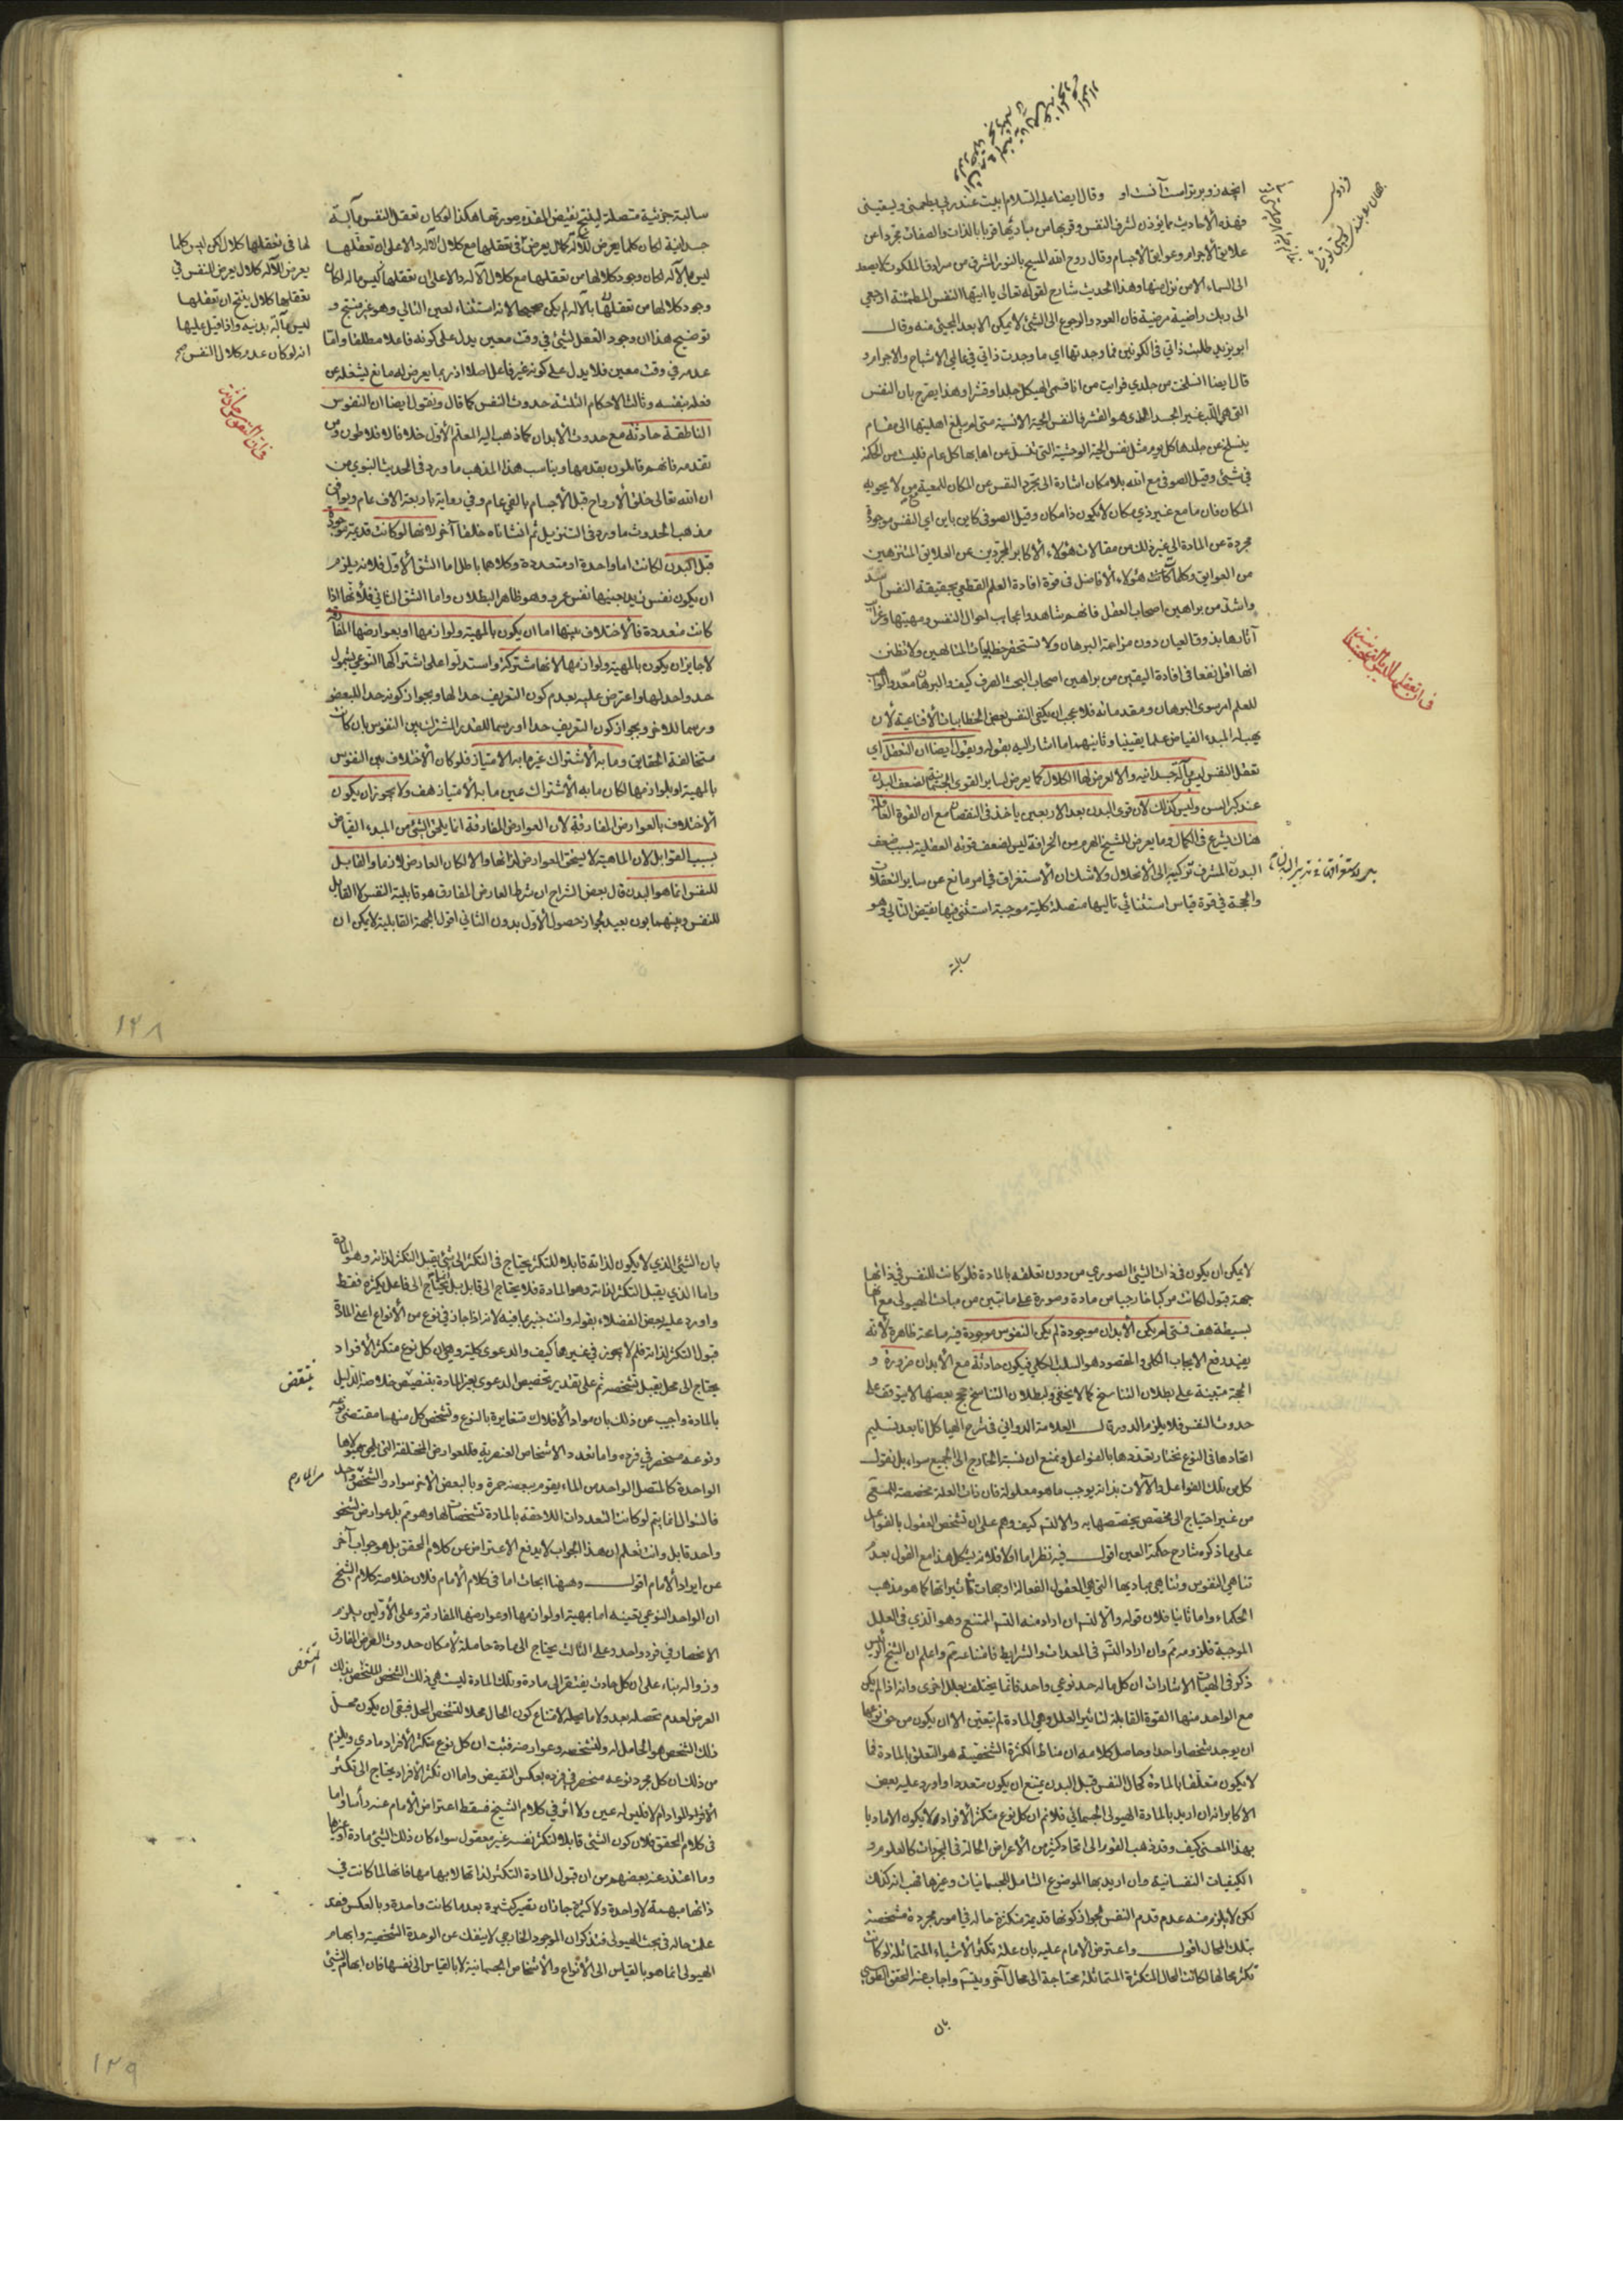 انچه زو برتر است آنست او وقال ايضا عليه السلام ابيت عند ربي يطعمني ويسقيني
فهذه الأحاديث مما يؤذن لشرف النفس وقربها من مباديها قربا بالذات والصفات مجردا عن
علايق الأجرام وعوايق الأجسام وقال روح الله المسيح بالنور المشرق من سرادق الملكوت لا يصعد
الى السماء الا من نزل منها وهذا الحديث شارح لقوله تعالى يا ايتها النفس المطمئنة ارجعي
الى ربك راضية مرضية فان العود والرجوع الى الشئ لا يمكن الا بعد المجيئ منه وقال
ابو يزيد طلبت ذاتي في الكونين فما وجدتها اي ما وجدت ذاتي في عالمي الاشباح والاجرام و
قال ايضا انسلخت من جلدي فرايت من انا فسمى الهيكل جلدا وقشرا وهذا يصرح بان النفس
التي هي اللب غير الجسد الذي هو القشر فالنفس الحية الانسية متى لم يبلغ اهليتها الى مقام
ينسلخ عن جلدها كل يوم مثل نفس الحية الوحشية التي تنسل عن اهابها كل عام فليست من الحكمة
في شيئ وقيل الصوفي مع الله بلا مكان اشارة الى تجرد النفس عن المكان للمعية مع من لا يحويه
المكان فان ما مع غير ذي مكان لا يكون ذا مكان وقيل الصوفي كاين باين اي النفس موجودة
مجردة عن المادة الى غير ذلك من مقالات هؤلاء الأكابر المجردين عن العلايق المتنزهين
من العوايق وكلمات هؤلاء الأفاضل في قوة افادة العلم القطعي بحقيقة النفس اسد
واشد من براهين اصحاب العقل فانهم شاهدوا عجايب احوال النفس ومهيتها وغرايب
آثارها بذوق العيان دون مزاحمة البرهان ولا تستحقر خطابيات المتالهين ولا تظنن
انها اقل نفعا في افادة اليقين من براهين اصحاب البحث الصرف كيف والبرهان معد والواهب
للعلم امر سوى البرهان ومقدماته فلا عجب ان يكتفي النفس ببعض الخطابيات الأقناعية لأن
يهب له المبدء الفياض علما يقينيا وثانيهما ما اشار اليه بقوله ونقول ايضا ان التعقل اي
تعقل النفس ليس بآلة جسدانية والا لعرض لها الكلال كما يعرض لساير القوى الجسمانية لضعف البدن
عند كبر السن وليس كذلك لأن قوى البدن بعد الاربعين ياخذ في النقصان مع ان القوة العاقلة
هناك يشرع في الكمال وما يعرض للشيخ الهرم من الخرافة ليس لضعف قوته العقلية بسبب ضعف
البدن المشرف تركيبه الى الأنحلال ولا شك ان الأستغراق في امر مانع عن ساير التعقلات
والحجة في قوة قياس استثنائي تاليها متصلة كلية موجبة استثنى فيها نقيض التالي وهو
سالبة
سالبة جزئية متصلة لينتج نقيض المقدم صورتها هكذا لو كان تعقل النفس بآلة
جسدانية لكان كلما يعرض للآلة كلال يعرض في تعقلها مع كلال الآلة دالا على ان تعقلها
ليس بالآلة لكان وجود كلالها من تعقلها مع كلال الآلة دالا على ان تعقلها ليس بالة لكان
وجود كلالها من تعقلها بالآلة لم يكن صحيحا لانه استثناء لعين التالي وهو غير منتج و
توضيح هذا ان وجود التعقل لشئ في وقت معين يدل على كونه فاعلا مطلقا واما
عدمه في وقت معين فلا يدل على كونه غير فاعل اصلا اذ ربما يعرض له مانع يشغله عن
فعله بنفسه وثالث الاحكام الثلثة حدوث النفس كما قال ونقول ايضا ان النفوس
الناطقة حادثة مع حدوث الأبدان كما ذهب اليه المعلم الأول خلافا لافلاطون ومن
تقدمه فانهم قايلون بقدمها ويناسب هذا المذهب ما ورد في الحديث النبوي من
ان الله تعالى خلق الأرواح قبل الأجسام بالفي عام وفي رواية باربعة الاف عام ويوافق
مذهب الحدوث ما ورد في التنزيل ثم انشاناه خلقا آخر لانها لو كانت قديمة موجودة
قبل البدن لكانت اما واحدة او متعددة وكلاهما باطل اما الشق الأول فلانه يلزم
ان يكون نفس زيد بعينها نفس عمرو وهو ظاهر البطلان واما الشق الثاني فلأنها اذا
كانت متعددة فالأختلاف بينها اما ان يكون بالمهية ولوازمها او بعوارضها المفارقة
لا جايز ان يكون بالمهية ولوازمها لانها مشتركة واستدلوا على اشتراكها النوعي بشمول
حد واحد لها واعترض عليه بعدم كون التعريف حدا لها وبجواز كونه حدا للبعض
ورسما للاخر وبجواز كون التعريف حدا او رسما للقدر المشترك بين النفوس بان كانت
متخالفة الحقايق وما به الأشتراك غير ما به الامتياز فلو كان الأختلاف بين النفوس
بالمهية او بلوازمها لكان ما به الأشتراك عين ما به الأمتياز هف ولا يجوز ان يكون
الأختلاف بالعوارض المفارقة لأن العوارض المفارقة انما يلحق الشئ من المبدء الفياض
بسبب القوابل لان الماهية لا يستحق العوارض لذاتها والا لكان العارض لازما والقابل
للنفس انما هو البدن قال بعض الشراح ان شرط العارض المفارق هو قابلية النفس لا القابل
للنفس وبينهما بون بعيد لجواز حصول الأول بدون الثاني اقول الجهة القابلية لا يمكن ان
لها في تعقلها كلال لكن ليس كلما
يعرض للآلة كلال يعرض للنفس في
تعقلها كلال ينتج ان تعقلها
ليس بآلة بدنية واذا قيل عليها
انه لو كان عدم كلال النفس صح
١٢٨
لا يمكن ان يكون في ذات الشئ الصوري من دون تعلقه بالمادة فلو كانت للنفس في ذاتها
جهة قبول لكانت مركبا خارجيا من مادة وصورة على ما تبين من مباحث الهيولى مع انها
بسيطة هف فمتى لم يكن الأبدان موجودة لم يكن النفوس موجودة فيه مناعة ظاهرة لأنه
يفيد رفع الايجاب الكلي والمقصود هو السلب الكلي فيكون حادثة مع الأبدان ضرورة و
الحجة مبتنية على بطلان التناسخ كما لا يخفى ولبطلان التناسخ حجج بعضها لا يتوقف على
حدوث النفس فلا يلزم الدور قال العلامة الدواني في شرح الهياكل انا بعد تسليم
اتحادها في النوع نختار تعددها بالفواعل ونمنع ان نسبة الخارج الى الجميع سواء بل نقول
كل من تلك الفواعل والآلات بذاته يوجب ما هو معلولة فان ذات العلة مخصصة للمسبب
من غير احتياج الى مخصص يخصصها به والا لتسلسل كيف وهم على ان تشخص العقول بالفواعل
على ما ذكره شارح حكمة العين اقول فيه نظر اما اولا فلانه يشكل هذا مع القول بعدم
تناهي النفوس وتناهي مباديها التي هي العقول الفعالة او جهات تأثيراتها كما هو مذهب
الحكماء واما ثانيا فلان قوله والا لتسلسل ان اراد منه التسلسل الممتنع وهو الذي في العلل
الموجبة فلزومه مم وان اراد التسلسل في المعدات والشرايط فامتناعه مم واعلم ان الشيخ الرئيس
ذكر في الهيات الاشارات ان كل ما له حد نوعي واحد فانما يختلف بعلل اخرى وانه اذا لم يكن
مع الواحد منها القوة القابلة لتاثير العلل وهي المادة لم تتعين الا ان يكون من حق نوعها
ان يوجد شخصا واحدا وحاصل كلامه ان مناط الكثرة الشخصية هو التعلق بالمادة فما
لا يكون متعلقا بالمادة كحال النفس قبل البدن يمتنع ان يكون متعددا واورد عليه بعض
الاكابر انه ان اريد بالمادة الهيولى الجسماني فلا نم ان كل نوع متكثر الأفراد لا يكون الا ماديا
بهذا المعنى كيف وقد ذهب القوم الى اتحاد كثير من الأعراض الحالة في المجردات كالعلوم و
الكيفيات النفسانية وان اريد بها الموضوع الشامل للجسمانيات وغيرها فهب انه كذلك
لكن لا يلزم منه عدم قدم النفس لجواز كونها قديمة متكثرة حالة في امور مجردة مشخصة
بتلك المحال اقول واعترض الأمام عليه بان علة تكثر الأشياء المتماثلة لو كانت
تكثر محالها لكانت المحال المتكثرة المتماثلة محتاجة الى محال آخر ويتسلسل واجاب عنه المحقق الطوسي
بان
بان الشئ الذي لا يكون لذاته قابلا للتكثر يحتاج في التكثر الى شئ يقبل التكثر لذاته وهو المادة
واما الذي يقبل التكثر لذاته وهو المادة فلا يحتاج الى قابل بل يحتاج الى فاعل يكثره فقط
واورد عليه بعض الفضلاء بقوله وانت خبير بما فيه لانه اذا جاز في نوع من الأنواع اعني المادة
قبول التكثر لذاته فلم لا يجوز في غيرها كيف والدعوى كلية وهي ان كل نوع متكثر الأفراد
يحتاج الى محل يقبل تشخصه ثم على تقدير تخصيص الدعوى بغير المادة بتنصيص خلاصة الدليل
بالمادة واجيب عن ذلك بان مواد الأفلاك متغايرة بالنوع وتشخص كل منهما مقتضى نوعه
ونوعه منحصر في فرده واما تعدد الاشخاص العنصرية فللعوارض المختلفة التي يلحق هيولاها
الواحدة كالمتصل الواحد من الماء يقوم ببعضه حمرة وبالبعض الآخر سواد والشخص واحد
فالسؤال انما يتم لو كانت التعددات اللاحقة بالمادة تشخصات لها وهو مم بل عوارض لشخص
واحد قابل وانت تعلم ان هذا الجواب لا يدفع الاعتراض عن كلام المحقق بل هو جواب آخر
عن ايراد الأمام اقول وههنا ابحاث اما في كلام الامام فلان خلاصة كلام الشيخ
ان الواحد النوعي تعينه اما بمهيته او لوازمها او عوارضها المفارقة وعلى الأولين يلزم
الانحصار في فرد واحد وعلى الثالث يحتاج الى مادة حاملة لأمكان حدوث العرض المفارق
وزواله بناء على ان كل حادث يفتقر الى مادة وتلك المادة ليست هي ذلك الشخص المتشخص بذلك
العرض لعدم تحصله بعد ولا ما يحله لامتناع كون الحال محلا لتشخص المحل فبقي ان يكون محل
ذلك الشخص هو الحامل له ولتشخصه وعوارضه فثبت ان كل نوع متكثر الأفراد مادي ويلزم
من ذلك ان كل مجرد نوعه منحصر في فرده بعكس النقيض واما ان تكثر الأفراد يحتاج الى تكثر
الأفراد المواد ام لا فليس له عين ولا اثر في كلام الشيخ فسقط اعتراض الأمام عنه رأسا واما
في كلام المحقق فلان كون الشئ قابلا لتكثر نفسه غير معقول سواء كان ذلك الشئ مادة او غيرها
وما اعتذر عنه بعضهم من ان قبول المادة التكثر لذاتها لابهامها فانها لما كانت في
ذاتها مبهمة لا واحدة ولا كثيرة جاز ان تصير كثيرة بعد ما كانت واحدة وبالعكس فقد
علمت حاله في بحث الهيولى فتذكر ان الموجود الخارجي لا ينفك عن الوحدة الشخصية وابهام
الهيولى انما هو بالقياس الى الأنواع والأشخاص الجسمانية لا بالقياس الى نفسها فان ابهام الشئ
١٢٩